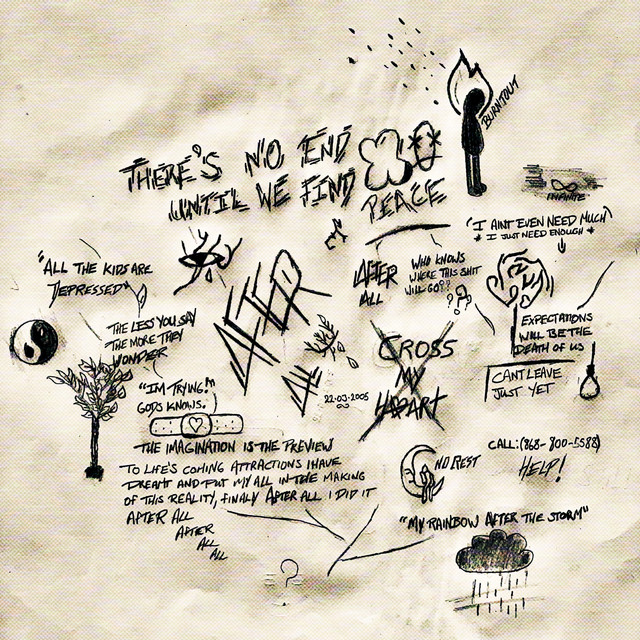 BURNTOUT
THERE'S NO END
UNTIL WE FIND PEACE
INFINITE
"I AINT EVEN NEED MUCH"
* I JUST NEED ENOUGH *
"ALL THE KIDS ARE
DEPRESSED"
AFTER
ALL
WHO KNOWS
WHERE THIS SHIT
WILL GO??
THE LESS YOU SAY
THE MORE THEY
WONDER
AFTER
ALL
EXPECTATIONS
WILL BE THE
DEATH OF US
CROSS
MY
HEART
CANT LEAVE
JUST YET
"IM TRYING!"
GODS KNOWS.
22-03-2005
THE IMAGINATION IS THE PREVIEW
TO LIFE'S COMING ATTRACTIONS I HAVE
DREAMT AND PUT MY ALL IN THE MAKING
OF THIS REALITY, FINALY AFTER ALL I DID IT
AFTER ALL
AFTER
ALL
ALL
NO REST
CALL:(868-800-5588)
HELP!
"MY RAINBOW AFTER THE STORM"
?